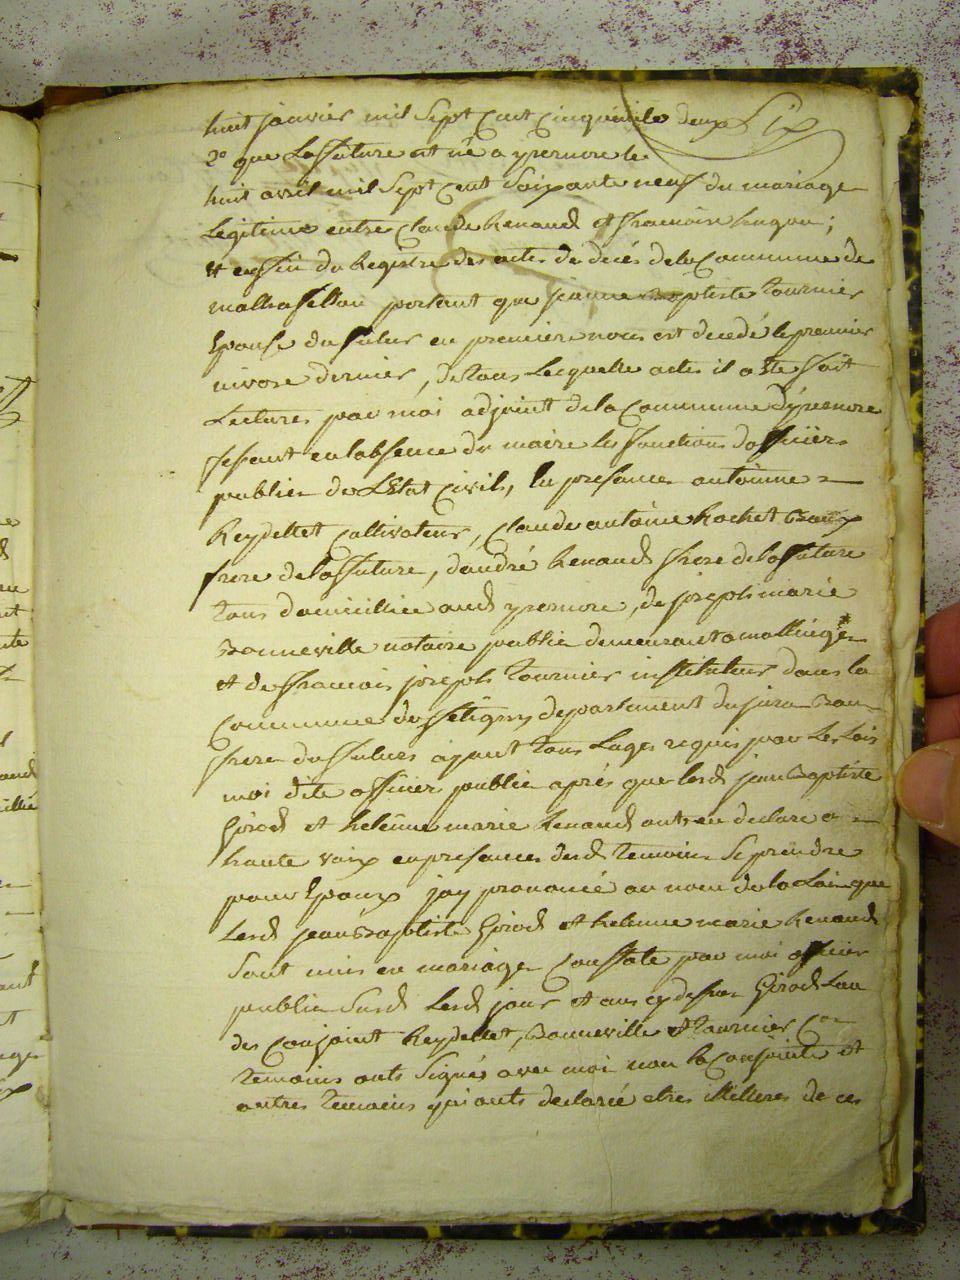 huit janvier mil Sept Cent Cinquente deux Six
2o que La future est né a ypernore le
huit avril mil Sept Cent Soixante neuf du mariage
Legitime entre Claude Renaud et francoise hugon ;
et enfin du Registre des actes de decés de la Commune de
portant que jeanne Baptiste Tournier
Epouse du futur en premiere nous est decedé le premier
nivose dernier, de tous Lesquelle actes il a ete fait
Lectures par moi adjoint de la Commune d'ypernore
fesant en labsence du maire les fonctions dofficier
public de LEtat Civil, En presance antoinne
Reydellet Cultivateur, Claude antoine Rochet Beaux
frere de la future, dandré Renaud frere de la future
tous domicillie aud ypernore, de joseph marie
Bonneville notaire public demeurant a
et de francois joseph Tournier instituteur dans la
Commune de departement du jura Beau
frere du futur ajant tous Lages requis par Les Lois
moi dite officier public aprés que lesd jean Baptiste
Girod et helenne marie Renaud onts en declare a
haute voix en presances desd temoins Se prendre
pour Epoux jay prononcé au nom de la Loi que
Lesd jean Baptiste Girod et helenne marie Renaud
Sont unis en mariage Constate par moi officier
public Susd Lesd jour et an cy dessus Girod Lun
des Conjoint Reydellet, Bonneville et Tournier
temoins onts Signés avec moi non la Conjointe et
autres temoins qui onts declarié etres illiteres de ces